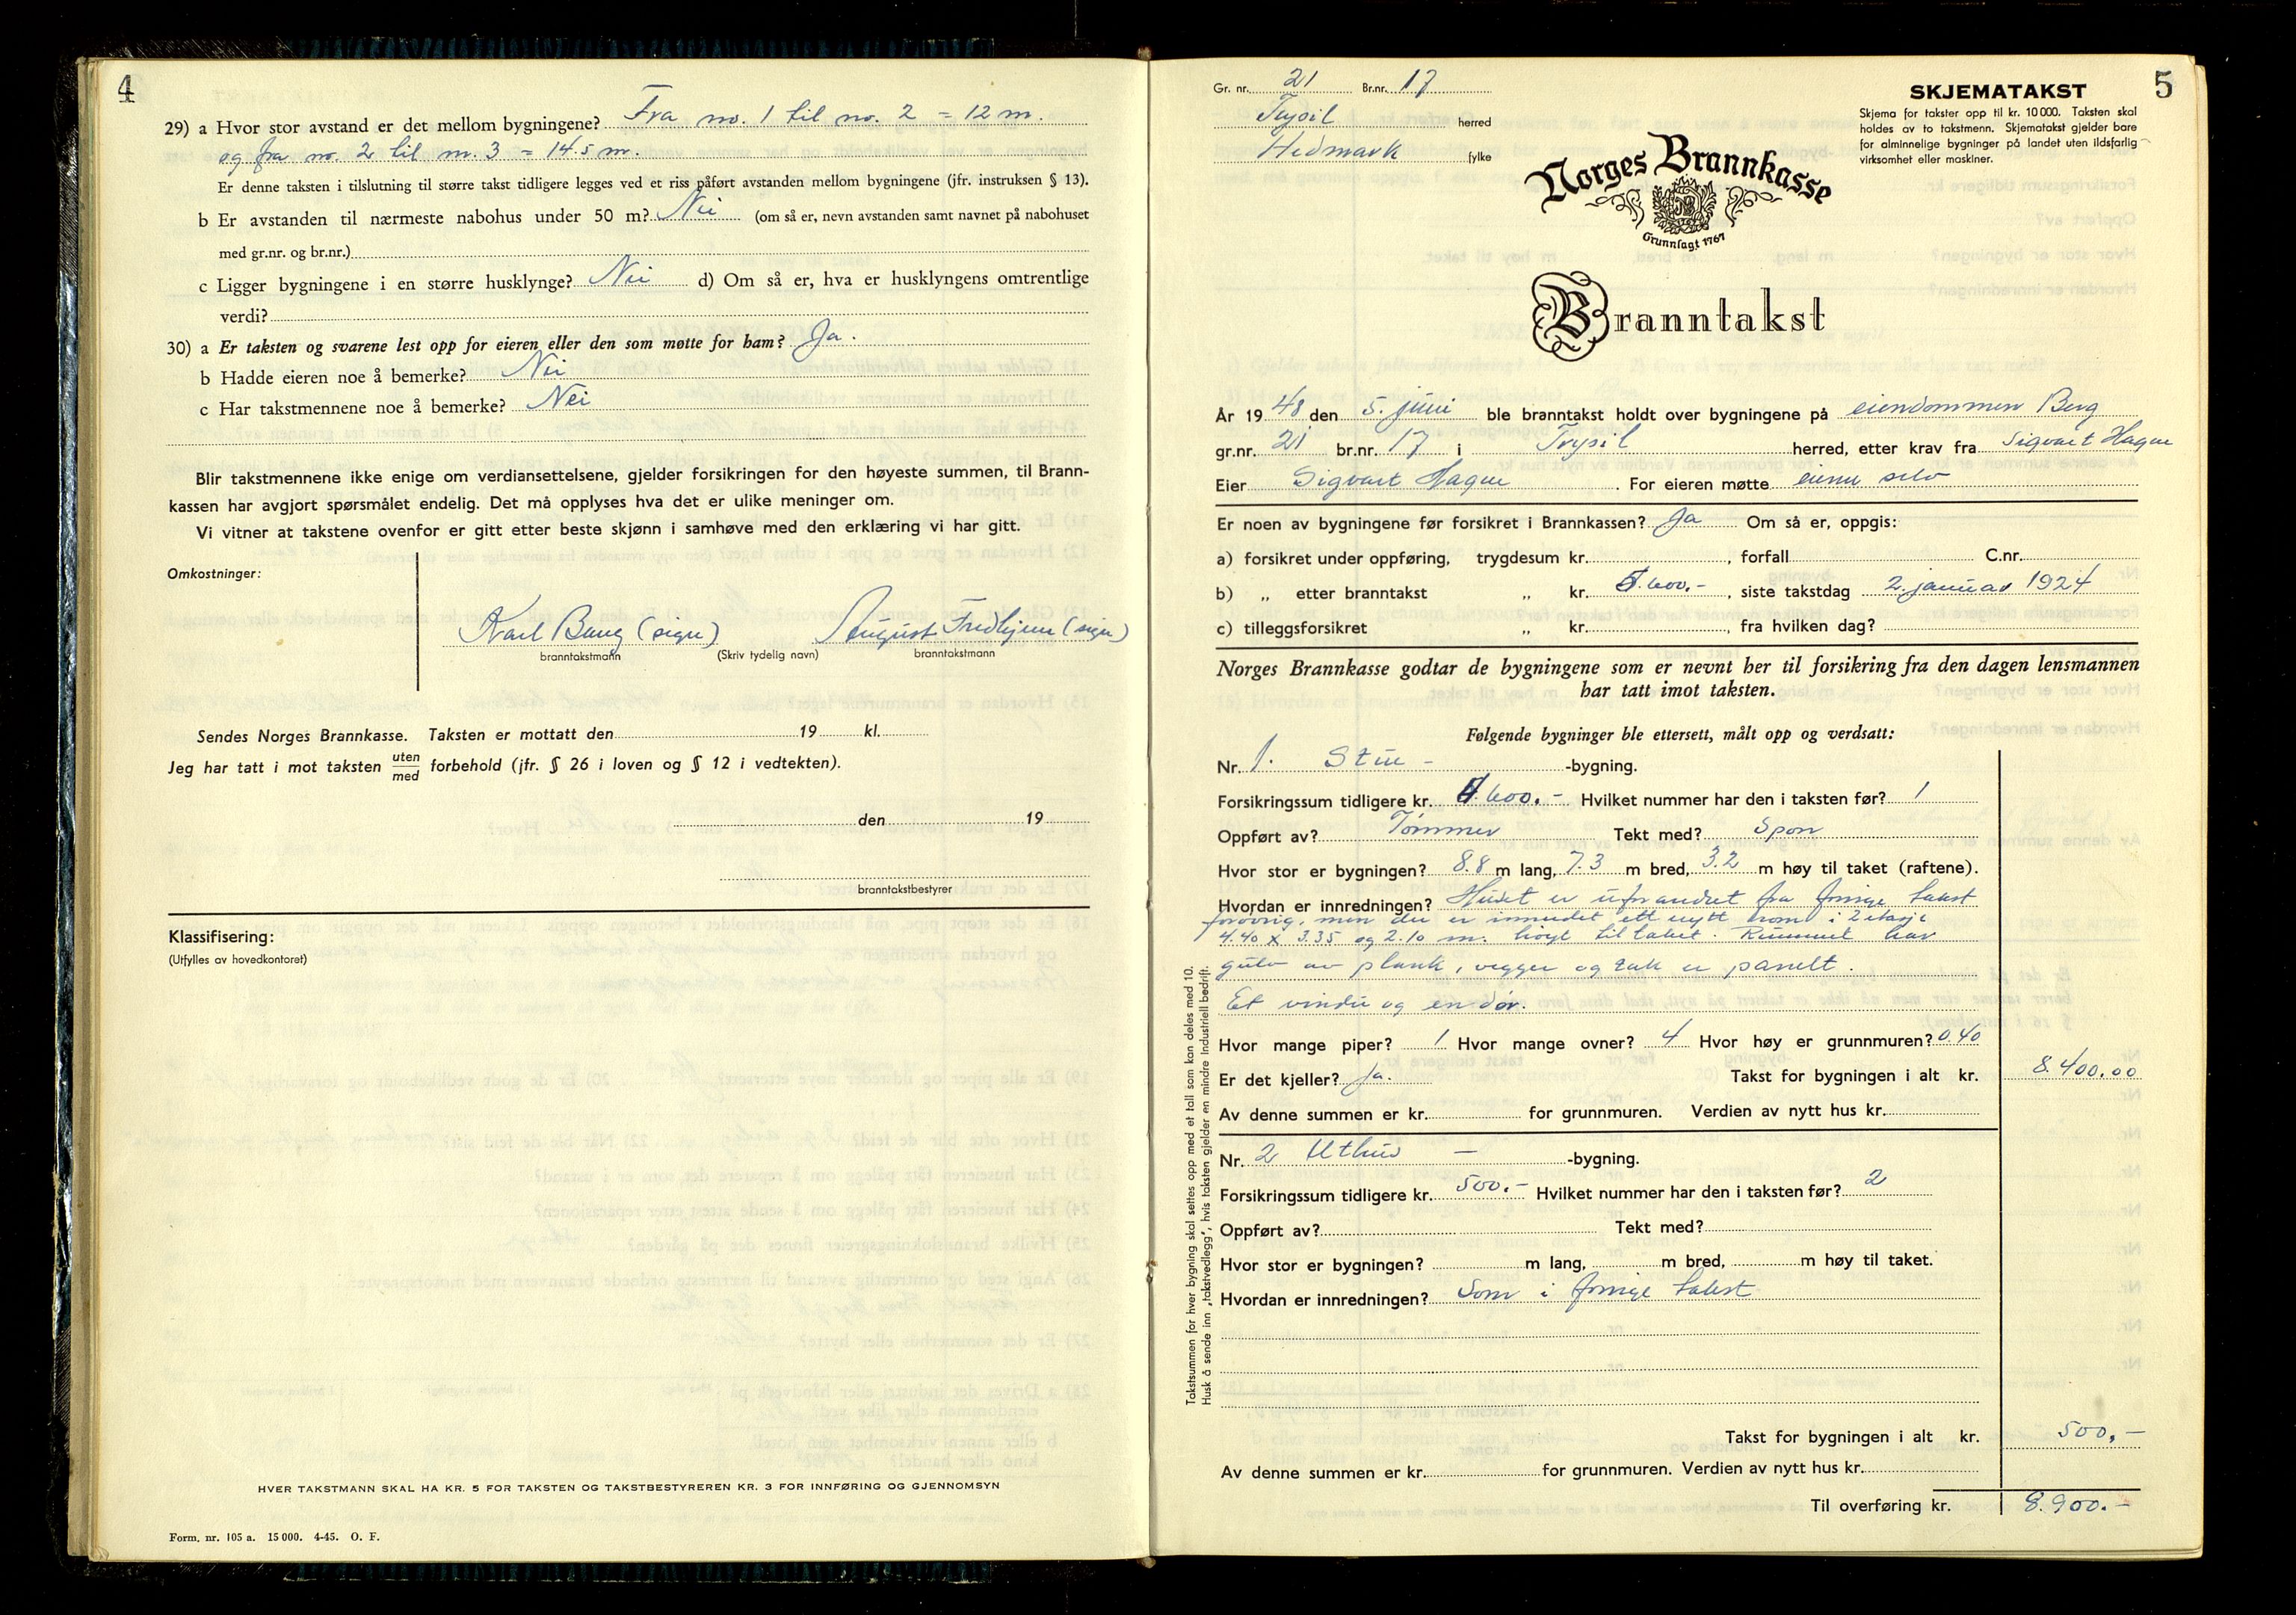 4
29) a Hvor stor avstand er det mellom bygningene? Fra no. 1 til no. 2 = 12 m.
og fra no. 2 til nr. 3 = 145 m.
Er denne taksten i tilslutning til større takst tidligere legges ved et riss påført avstanden mellom bygningene (jfr. instruksen § 13).
b Er avstanden til nærmeste nabohus under 50 m? Nei (om så er, nevn avstanden samt navnet på nabohuset
med gr.nr. og br.nr.)
c Ligger bygningene i en større husklynge? Nei d) Om så er, hva er husklyngens omtrentlige
verdi?
30) a Er taksten og svarene lest opp for eieren eller den som møtte for ham? Ja.
b Hadde eieren noe å bemerke? Nei
c Har takstmennene noe å bemerke? Nei
Blir takstmennene ikke enige om verdiansettelsene, gjelder forsikringen for den høyeste summen, til Brann-
kassen har avgjort spørsmålet endelig. Det må opplyses hva det er ulike meninger om.
Vi vitner at takstene ovenfor er gitt etter beste skjønn i samhøve med den erklæring vi har gitt.
Omkostninger:
Karl Bang (sign) August (sign)
branntakstmann (Skriv tydelig navn) branntakstmann
Sendes Norges Brannkasse. Taksten er mottatt den 19 kl.
Jeg har tatt i mot taksten uten/med forbehold (jfr. § 26 i loven og § 12 i vedtekten).
den 19
branntakstbestyrer
Klassifisering:
(Utfylles av hovedkontoret)
HVER TAKSTMANN SKAL HA KR. 5 FOR TAKSTEN OG TAKSTBESTYREREN KR. 3 FOR INNFØRING OG GJENNOMSYN
Form. nr. 105 a. 15 000. 4-45. O. F.
5
Gr. nr. 21 Br.nr. 17
Trysil herred
Hedmark fylke
SKJEMATAKST
Skjema for takster opp til kr. 10 000. Taksten skal
holdes av to takstmenn. Skjematakst gjelder bare
for alminnelige bygninger på landet uten ildsfarlig
virksomhet eller maskiner.
Norges Brannkasse
Grunnlagt 1767
Branntakst
År 1948 den 5. juni ble branntakst holdt over bygningene på eiendommen Berg
gr.nr. 21 br.nr. 17 i Trysil herred, etter krav fra Sigvart Hagen
Eier Sigvart Hagen. For eieren møtte eieren selv
Er noen av bygningene før forsikret i Brannkassen? Ja Om så er, oppgis:
a) forsikret under oppføring, trygdesum kr. , forfall C.nr.
b) „ etter branntakst „ kr. .600.- , siste takstdag 2. januar 1924
c) tilleggsforsikret „ kr. , fra hvilken dag?
Norges Brannkasse godtar de bygningene som er nevnt her til forsikring fra den dagen lensmannen
har tatt imot taksten.
Følgende bygninger ble ettersett, målt opp og verdsatt:
Nr. 1. Stue - -bygning.
Forsikringssum tidligere kr. .600.- Hvilket nummer har den i taksten før? 1
Oppført av? Tømmer Tekt med? Spon
Hvor stor er bygningen? 8.8 m lang, 7.3 m bred, 3.2 m høy til taket (raftene).
Hvordan er innredningen? Huset er uforandret fra forrige takst
forøvrig, men der er innredet ett nytt rom i 2 etasje
4.40 x 3.35 og 2.10 m. høyt til taket. Rummet har
gulv av plank, vegger og tak er panelt.
Et vindu og en dør.
Hvor mange piper? 1 Hvor mange ovner? 4 Hvor høy er grunnmuren? 0.40
Er det kjeller? Ja. Takst for bygningen i alt kr. 8.400.00
Av denne summen er kr. for grunnmuren. Verdien av nytt hus kr.
Nr. 2 Uthus - -bygning.
Forsikringssum tidligere kr. 500.- Hvilket nummer har den i taksten før? 2
Oppført av? Tekt med?
Hvor stor er bygningen? m lang, m bred, m høy til taket.
Hvordan er innredningen? Som i forrige takst
Takst for bygningen i alt kr. 500,-
Av denne summen er kr. for grunnmuren. Verdien av nytt hus kr.
Til overføring kr. 8.900.-
Takstsummen for hver bygning skal settes opp med et tall som kan deles med 10.
Husk å sende inn „takstvedlegg", hvis taksten gjelder en mindre industriell bedrift.